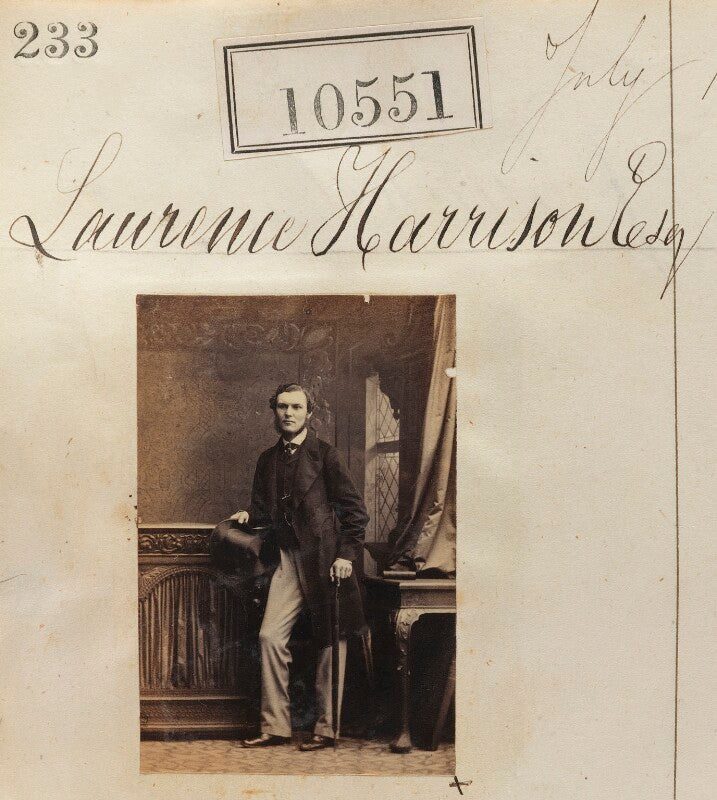 233
10551
July
Laurence Harrison Esq